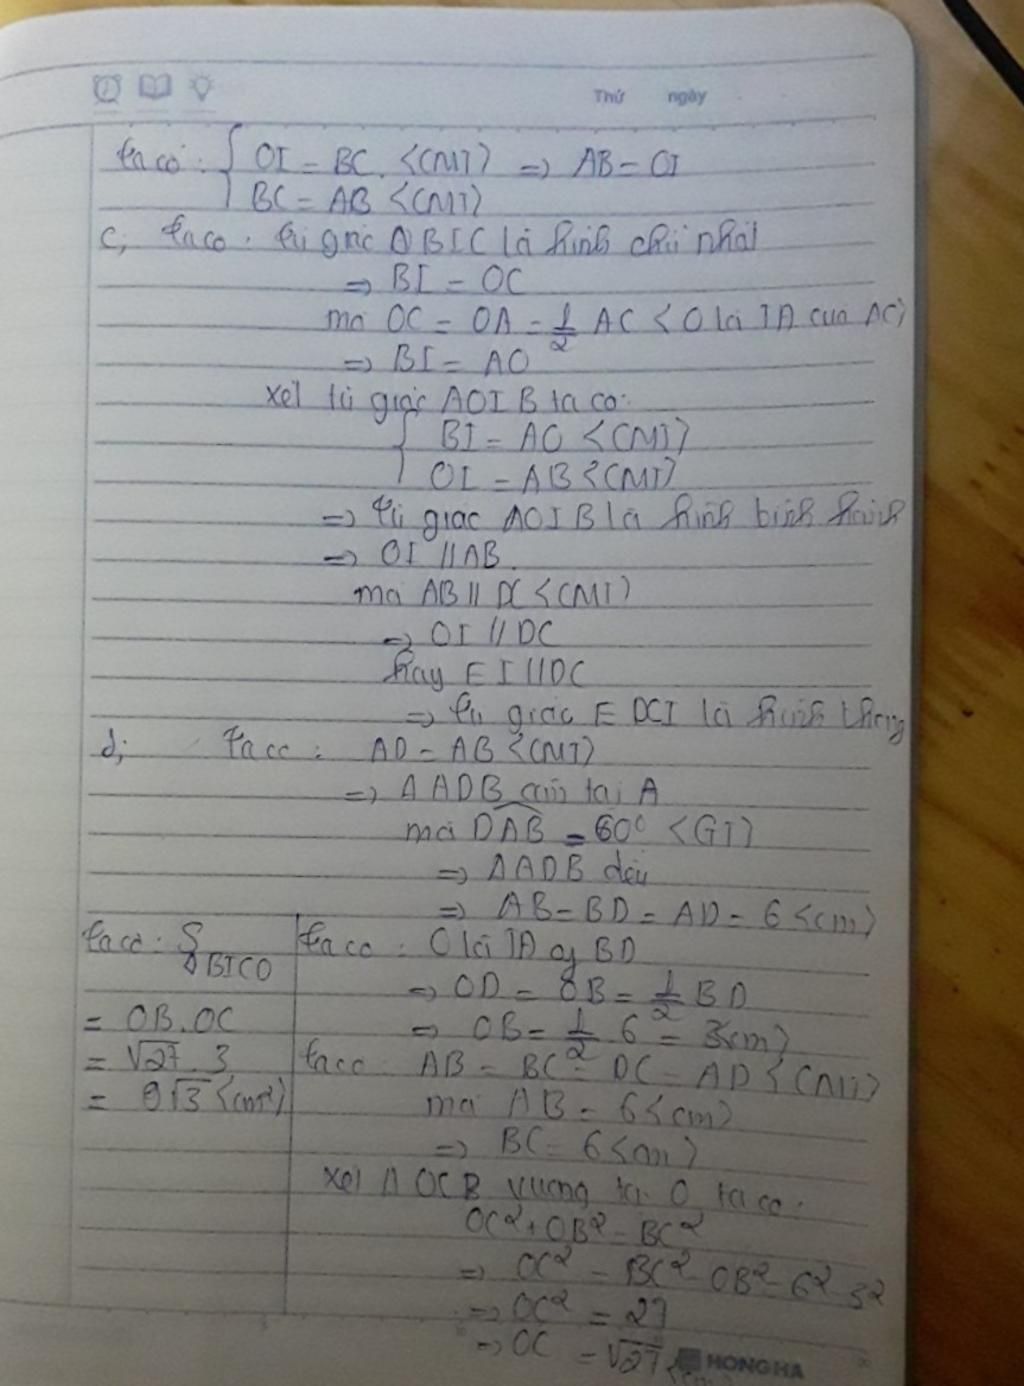 Thứ ngày
ta có: { OI = BC <CMT> => AB = OI
BC = AB <CMT>
c, ta có: tứ giác OBIC là hình chữ nhật
=> BI = OC
mà OC = OA = 1/2 AC <O là TĐ của AC>
=> BI = AO
xét tứ giác AOIB ta có:
{ BI = AO <CMT>
OI = AB <CMT>
=> tứ giác AOIB là hình bình hành
=> OI // AB.
mà AB // DC <CMT>
=> OI // DC
hay EI // DC
=> tứ giác EDCI là hình thang
d, ta có: AD = AB <CMT>
=> ΔADB cân tại A
mà DAB = 60° <GT>
=> ΔADB đều
=> AB = BD = AD = 6 <cm>
ta có: O là TĐ của BD
=> OD = OB = 1/2 BD
=> OB = 1/2 6 = 3<cm>
ta có: AB = BC = DC = AD <CMT>
mà AB = 6 <cm>
=> BC = 6 <cm>
xét Δ OCB vuông tại O ta có:
OC² + OB² = BC²
=> OC² = BC² - OB² = 6² - 3²
=> OC² = 27
=> OC = √27 <cm>
ta có: S BICO
= OB.OC
= √27 . 3
= 9√3 <cm²>
HONG HA